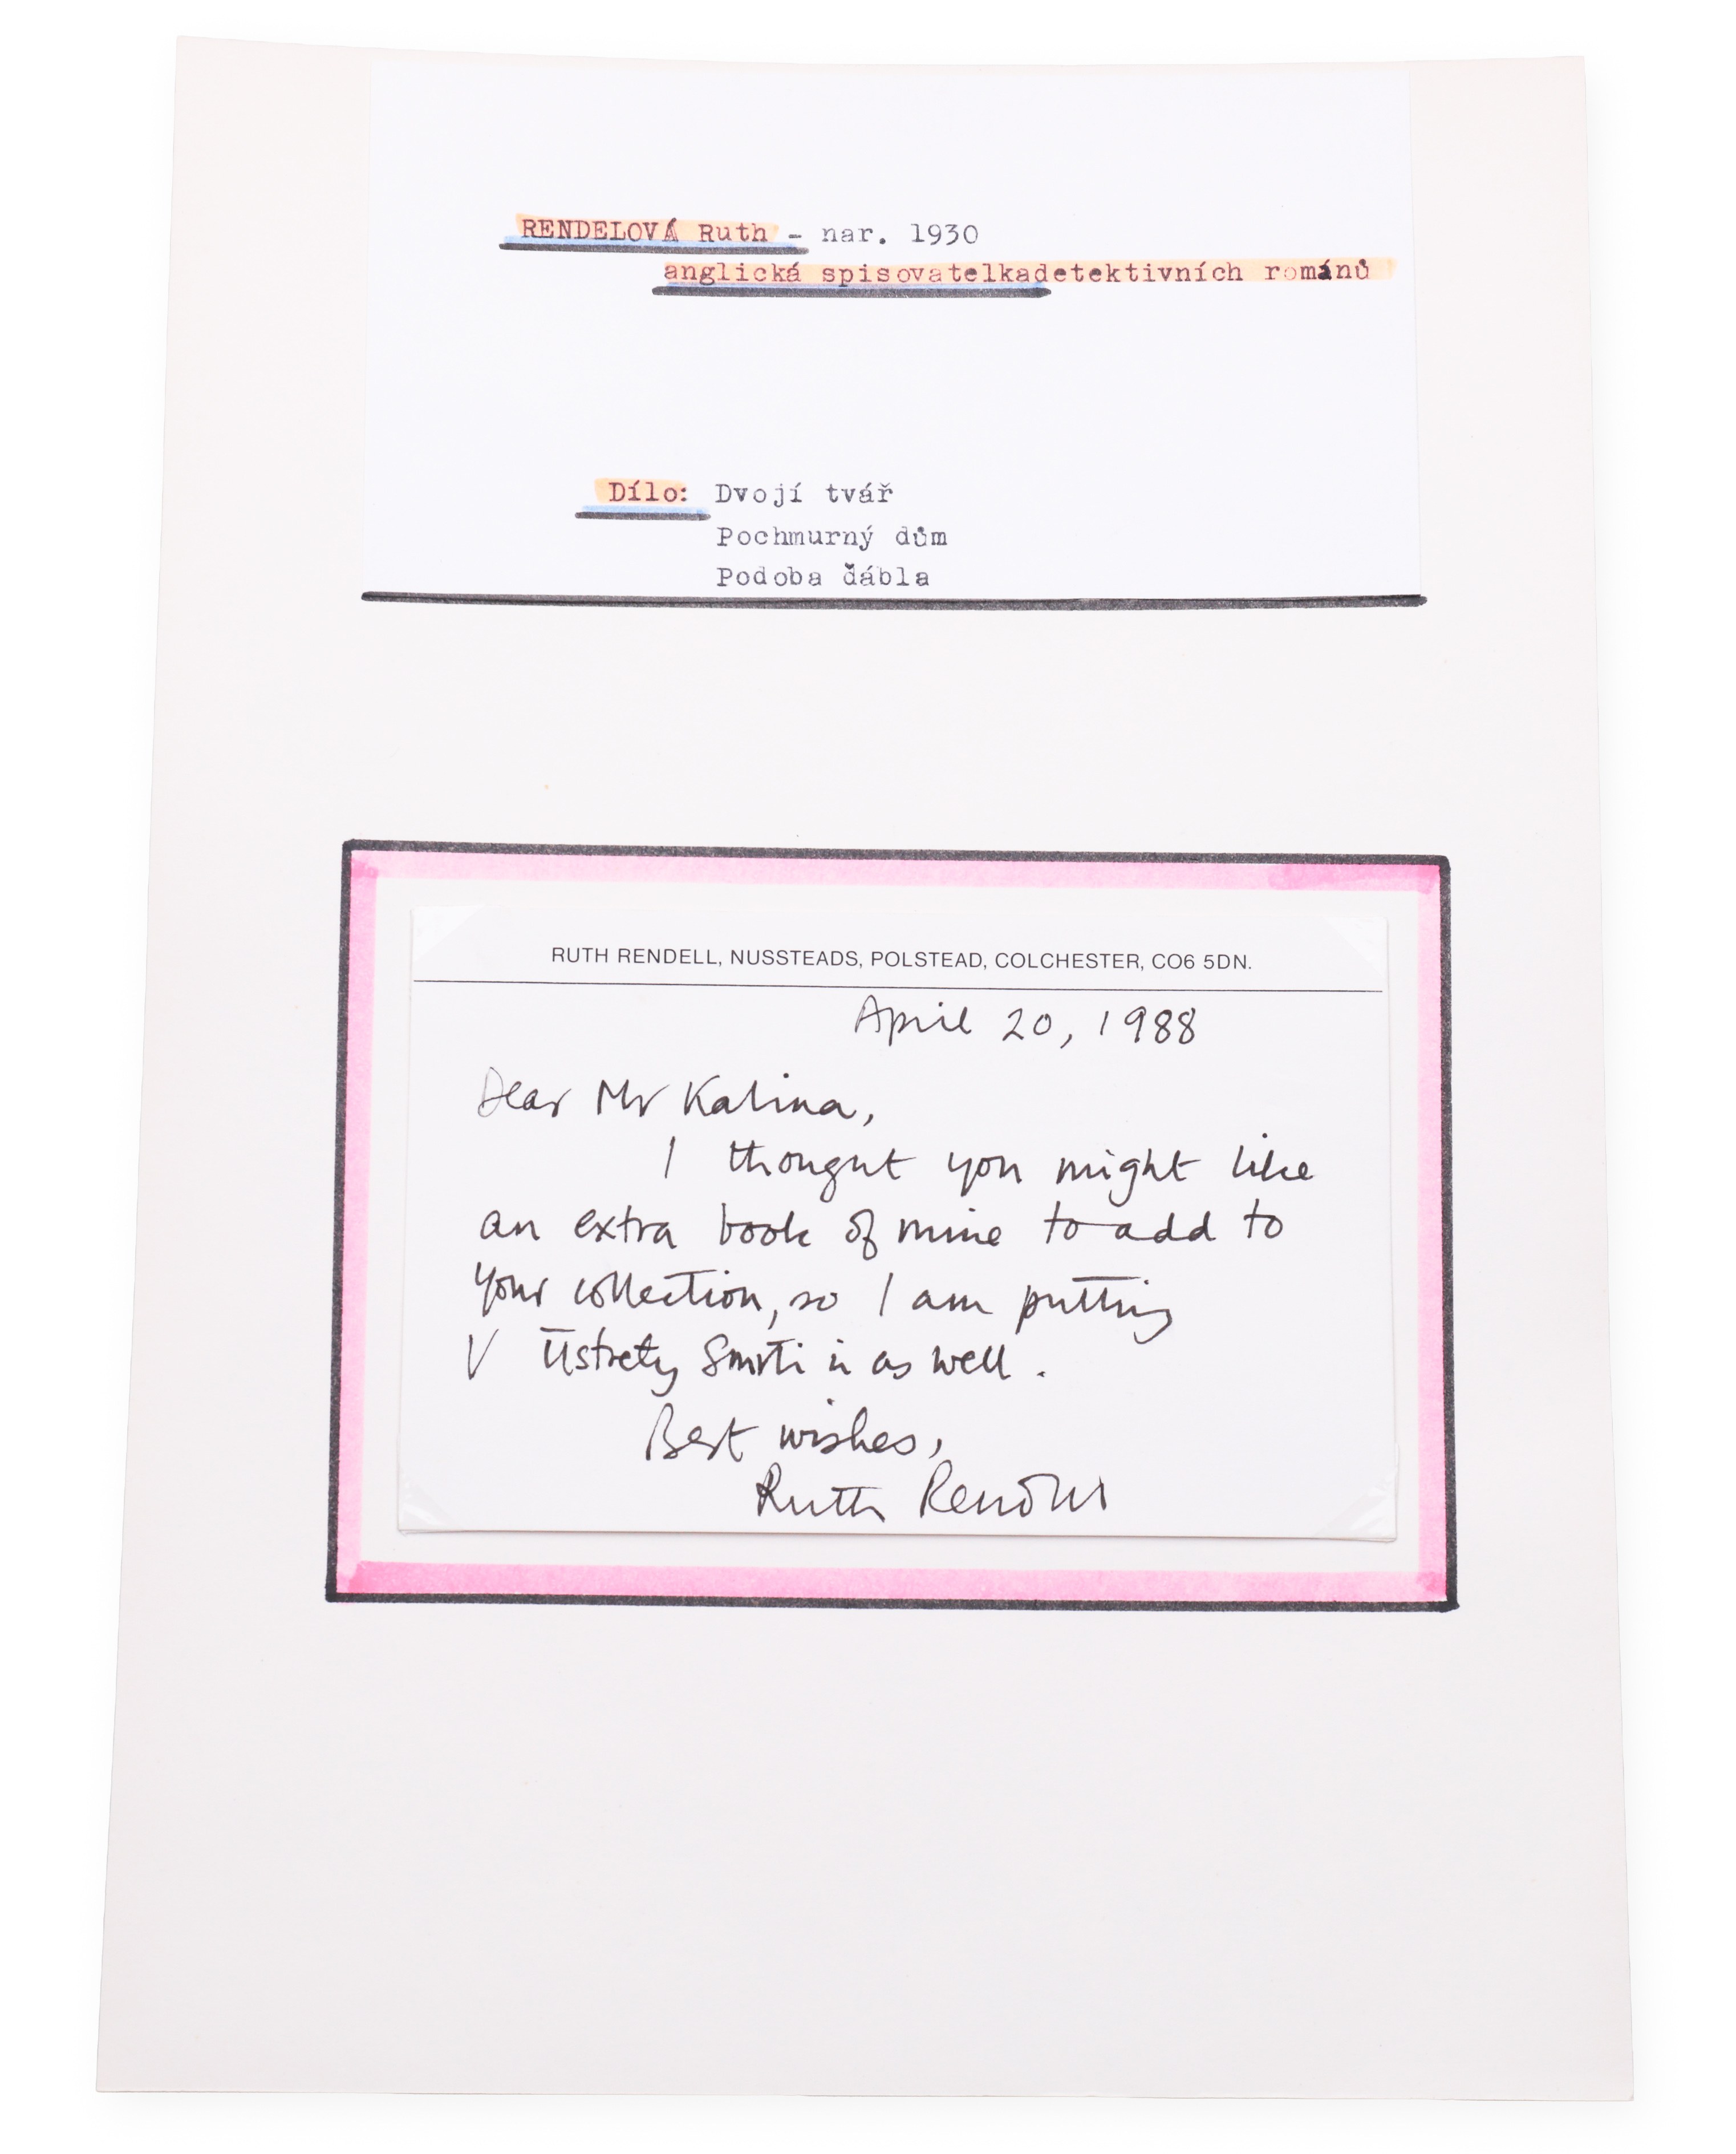 RENDELOVÁ Ruth - nar. 1930
anglická spisovatelkadetektivních románů
Dílo: Dvojí tvář
Pochmurný dům
Podoba ďábla
RUTH RENDELL, NUSSTEADS, POLSTEAD, COLCHESTER, CO6 5DN.
April 20, 1988
Dear Mr Kalina,
I thought you might like
an extra book of mine to add to
your collection, so I am putting
V Ústrety Smrti in as well.
Best wishes,
Ruth Rendell